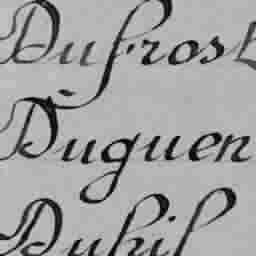 Dufrost
Duguen
Duhil